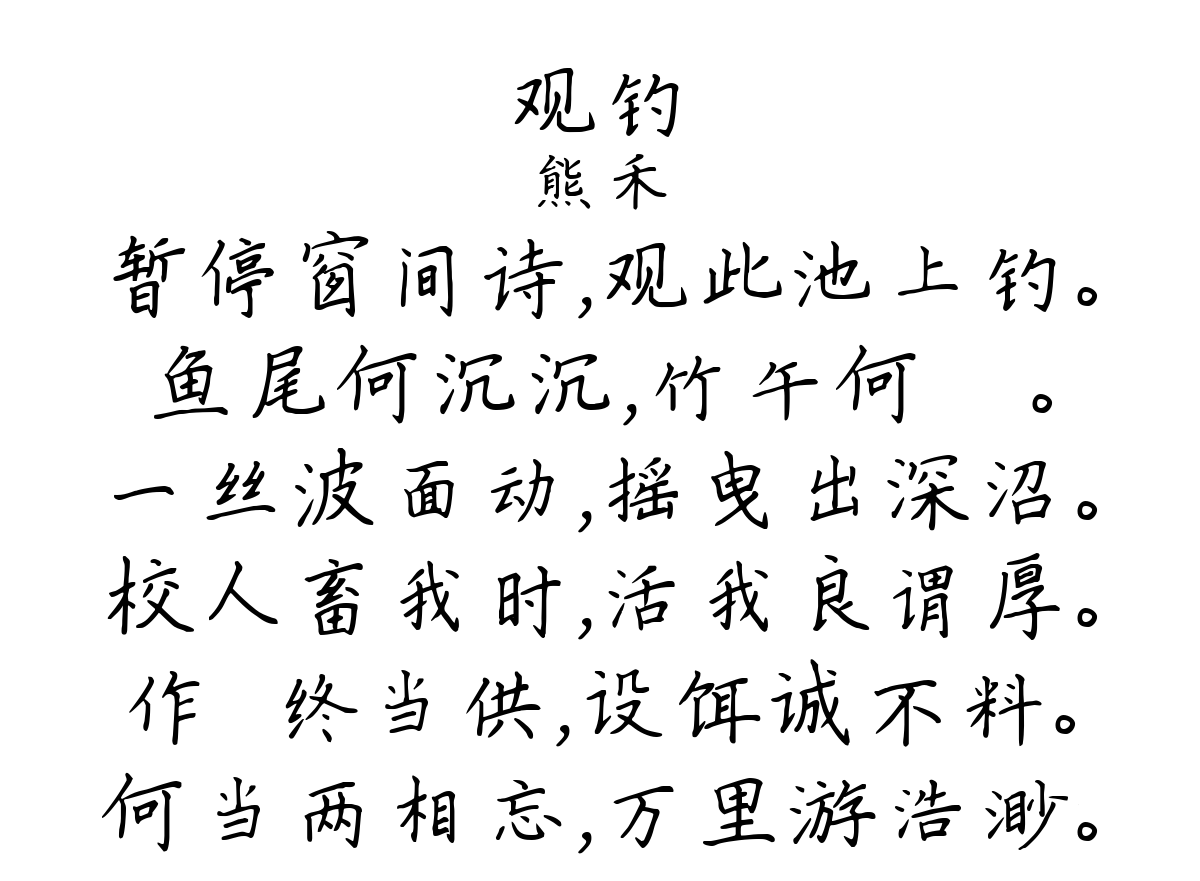 观钓
熊禾
暂停窗间诗,观此池上钓。
鱼尾何沉沉,竹午何 。
一丝波面动,摇曳出深沼。
校人畜我时,活我良谓厚。
作 终当供,设饵诚不料。
何当两相忘,万里游浩渺。